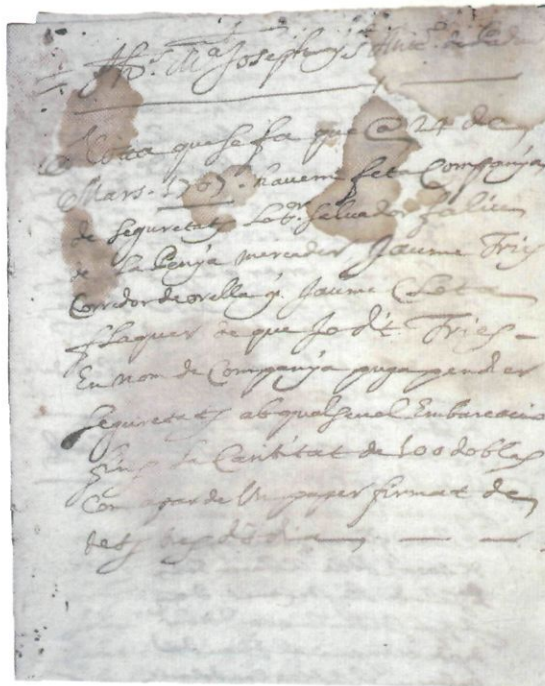 Jhs. Ma. Joseph
Nota que se fa que @ 24 de
Mars. 1707. havem feta Companÿa
de seguretats lo Sr. Salvador Feliu
de la Penÿa mercader Jaume Fries
Corredor de orella ÿ. Jaume Cleta
flaquer de que Jo dit. Fries –
En nom de Companÿa puga pender
seguretats ab qualseuol Embarcacio
fins la Cantitat de 500 doblas
Com apar de Un paper firmat de
dets dia